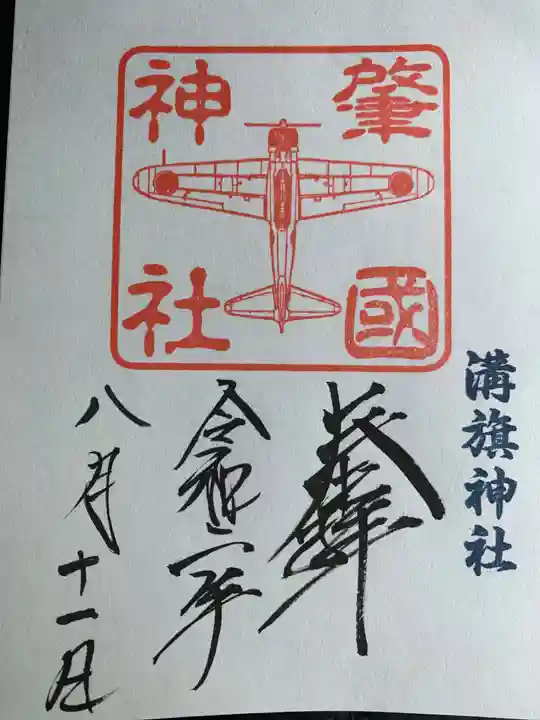 溝旗神社
肇國
神社
奉拝
令和二年
八月十一日